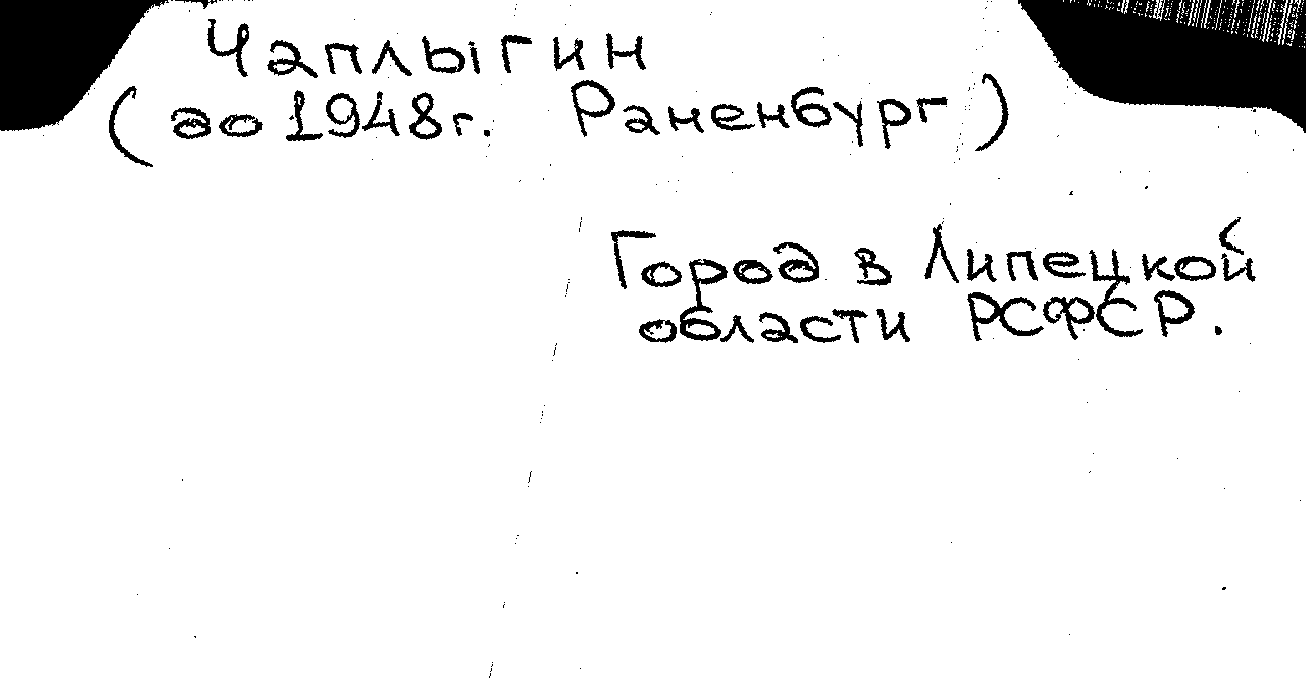 Чаплыгин
(до 1948г. Раненбург)
Город в Липецкой
области РСФСР.